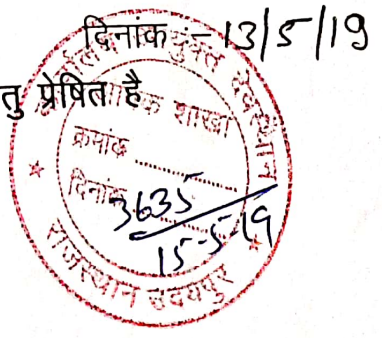 दिनांक :- 13/5/19
तु प्रेषित है
शाखा
क्रमांक ..............
दिनांक 3635
15-5-19
राजस्थान उदयपुर
देवस्थान